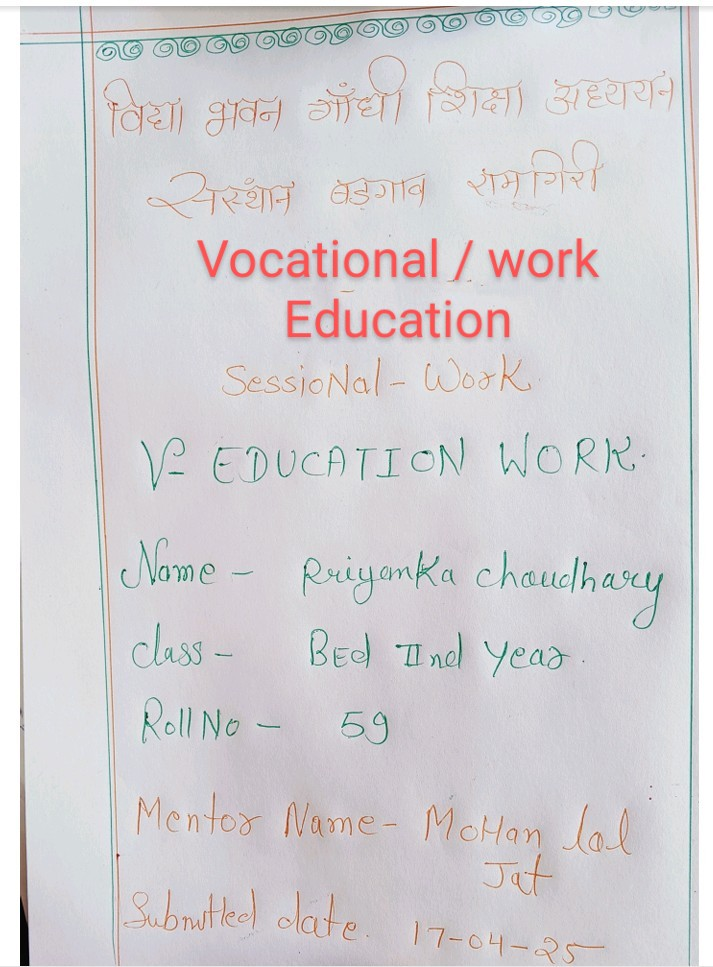 विद्या भवन गाँधी शिक्षा अध्ययन
संस्थान बड़गाव रामगिरी
Vocational / work
Education
SessioNal - Work.
V- EDUCATION WORK.
Name - Priyanka choudhary
class - BEd IInd Year.
Roll No - 59
Mentor Name - MoHan lal
Jat
Submitted date. 17-04-25